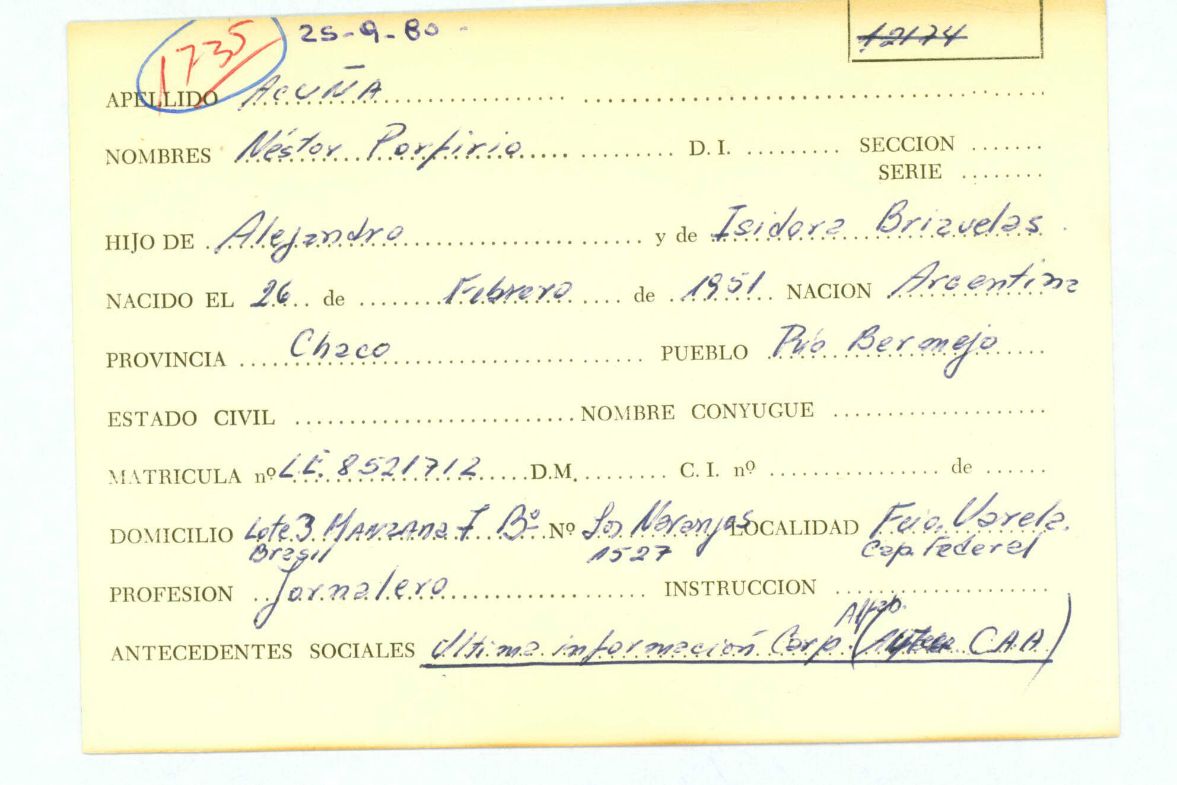 1735 25-9-80 - 12174
APELLIDO ACUÑA
NOMBRES Néstor Porfirio D. I. SECCION
SERIE
HIJO DE Alejandro y de Isidora Brizuelas
NACIDO EL 26 de Febrero de 1951 NACION Argentina
PROVINCIA Chaco PUEBLO Río Bermejo
ESTADO CIVIL NOMBRE CONYUGUE
MATRICULA nº L.E. 8521712 D.M. C. I. nº de
DOMICILIO Lote 3 MANZANA F Bº Nº Los Naranjos LOCALIDAD Fcio. Varela.
Brasil 1527 Cap. Federal
PROFESION Jornalero INSTRUCCION
ANTECEDENTES SOCIALES Ultima información Carp. ( C.A.A)